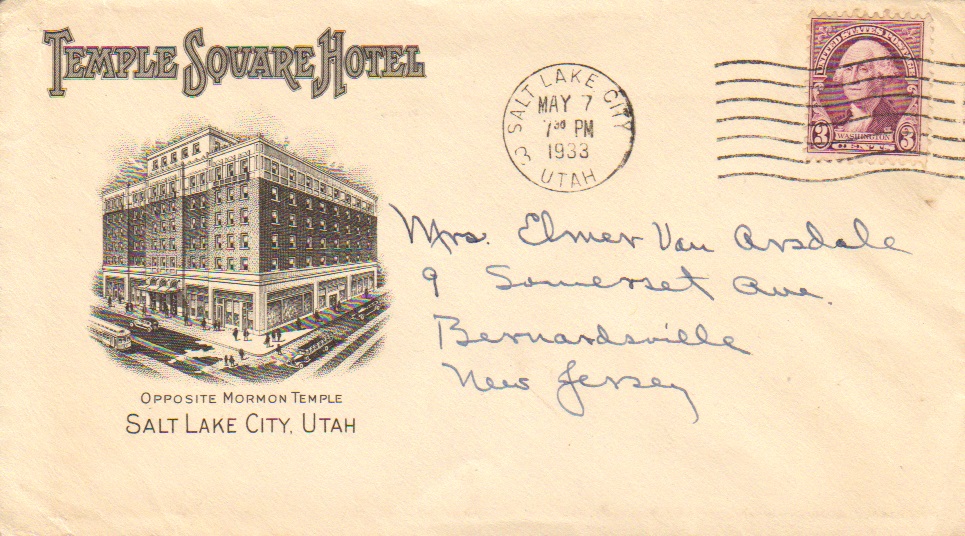 TEMPLE SQUARE HOTEL
OPPOSITE MORMON TEMPLE
SALT LAKE CITY, UTAH
SALT LAKE CITY
MAY 7
7 30 PM
1933
3
UTAH
UNITED STATES POSTAGE
3 WASHINGTON 3
CENTS
Mrs. Elmer Van Arsdale
9 Somerset Ave.
Bernardsville
New Jersey